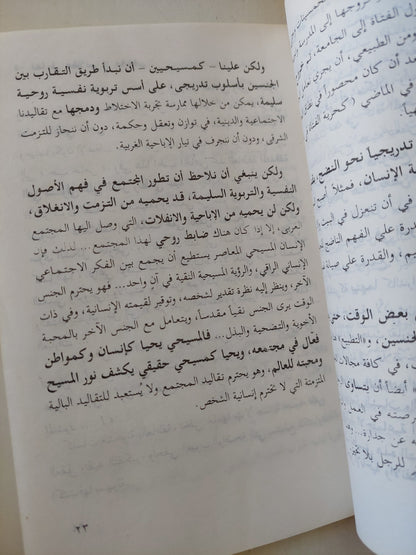 ولكن علينا - كمسيحيين - أن نبدأ طريق التقارب بين
الجنسين بأسلوب تدريجى، على أسس تربوية نفسية روحية
سليمة، يمكن من خلالها ممارسة تجربة الاختلاط ودمجها مع تقاليدنا
الاجتماعية والدينية، في توازن وتعقل وحكمة، دون أن ننحاز للتزمت
الشرقى، ودون أن ننجرف في تيار الإباحية الغربية.
ولكن ينبغي أن نلاحظ أن تطور المجتمع في فهم الأصول
النفسية والتربوية السليمة، قد يحميه من التزمت والانغلاق،
ولكن لن يحميه من الإباحية والانفلات، التي وصل إليها المجتمع
الغربى، إلا إذا كان هناك ضابط روحي لهذا المجتمع... لذلك فإن
الإنسان المسيحي المعاصر يستطيع أن يجمع بين الفكر الاجتماعي
الإنساني الراقي، والرؤية المسيحية النقية في آن واحد... فهو يحترم الجنس
الآخر، وينظر إليه نظرة تقدير لشخصه، وتوقير لقيمته الإنسانية، وفي ذات
الوقت يرى الجنس نقياً مقدساً، ويتعامل مع الجنس الآخر بالمحبة
الأخوية والتضحية والبذل... فالمسيحي يحيا كإنسان وكمواطن
فعال في مجتمعه، ويحيا كمسيحي حقيقي يكشف نور المسيح
ومحبته للعالم، فهو يحترم تقاليد المجتمع ولا يُستعبد للتقاليد البالية
المتزمتة التي لا تحترم إنسانية الشخص.
٢٣
الفتاة إلى الجامعة،
ومن الطبيعي، أن يجري
بعد أن كان محصوراً في
في الماضي (كحرية
تدريجيا نحو النضج
ة الإنسان، فمثلاً
في أن تنعزل في البيت
قدرة علي الفهم
والقدرة علي
بعض الوقت،
لجنسين،
في كافة مجالات
أيضاً أن تتساوى
فرصته في العمل
عن جدارة..
للرجل بلا